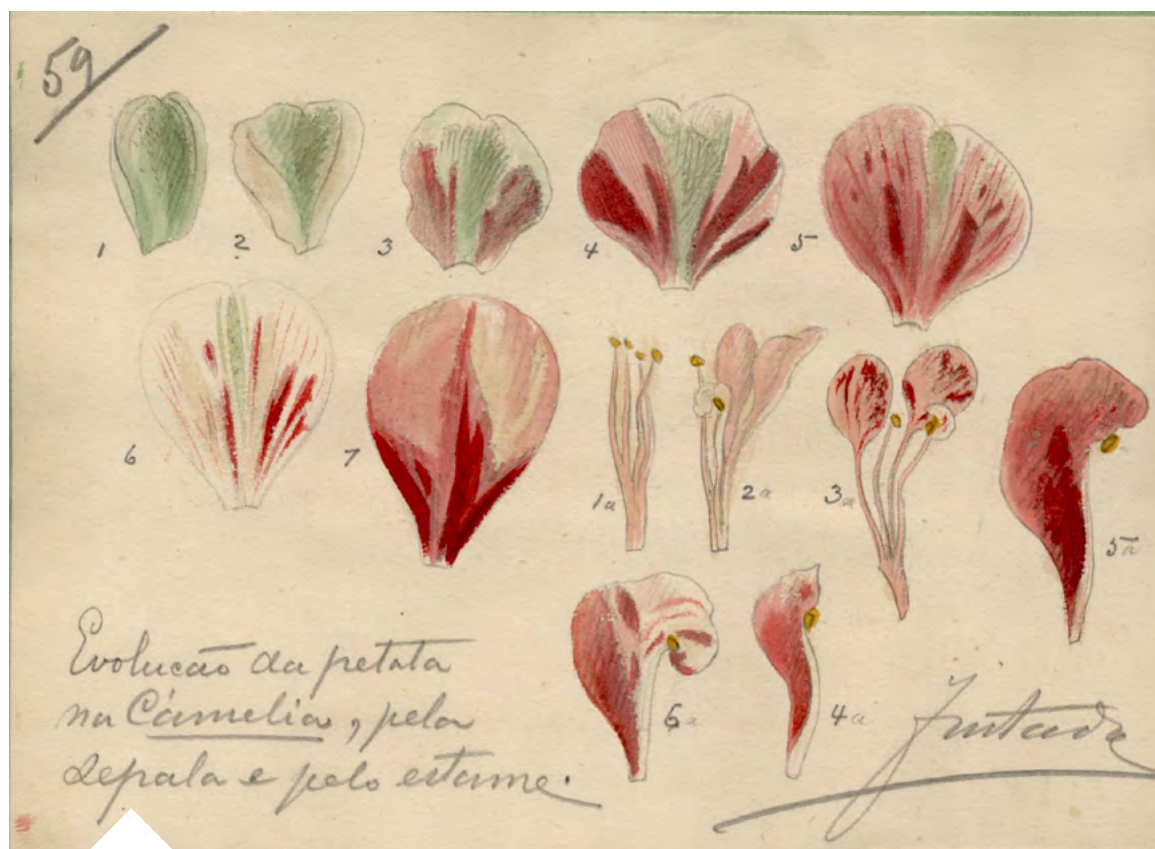 59
1 2 3 4 5
6 7 1a 2a 3a 5a
6a 4a
Evolucão da petala
na Cámelia, pela
sepala e pelo estame.